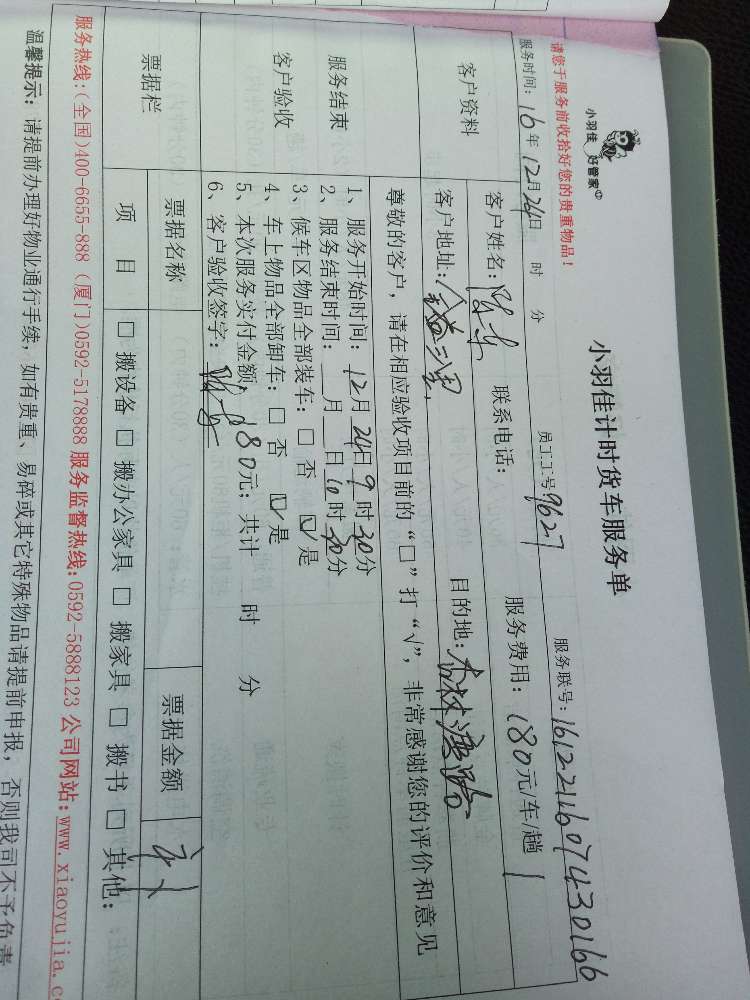 小羽佳 好管家
小羽佳计时货车服务单
请您于服务前收拾好您的贵重物品！
员工工号9627 服务联号:1612211607430166
服务时间: 16年12月24日 时 分
客户资料
客户姓名: 联系电话: 服务费用: 180元/车/趟
客户地址: 目的地:
尊敬的客户, 请在相应验收项目前的“□”打“√”, 非常感谢您的评价和意见
服务结束
客户验收
1、服务开始时间: 12月24日9时30分
2、服务结束时间: 月 日10时30分
3、候车区物品全部装车: □ 否 ☑ 是
4、车上物品全部卸车: □ 否 ☑ 是
5、本次服务实付金额: 180元; 共计 时 分
6、客户验收签字:
票据栏
票据名称 票据金额
项 目 □ 搬设备 □ 搬办公家具 □ 搬家具 □ 搬书 □ 其他:
服务热线:(全国)400-6655-888 (厦门)0592-5178888 服务监督热线:0592-5888123 公司网站:www.xiaoyujia.c
温馨提示: 请提前办理好物业通行手续, 如有贵重、易碎或其它特殊物品请提前申报, 否则我司不予负责